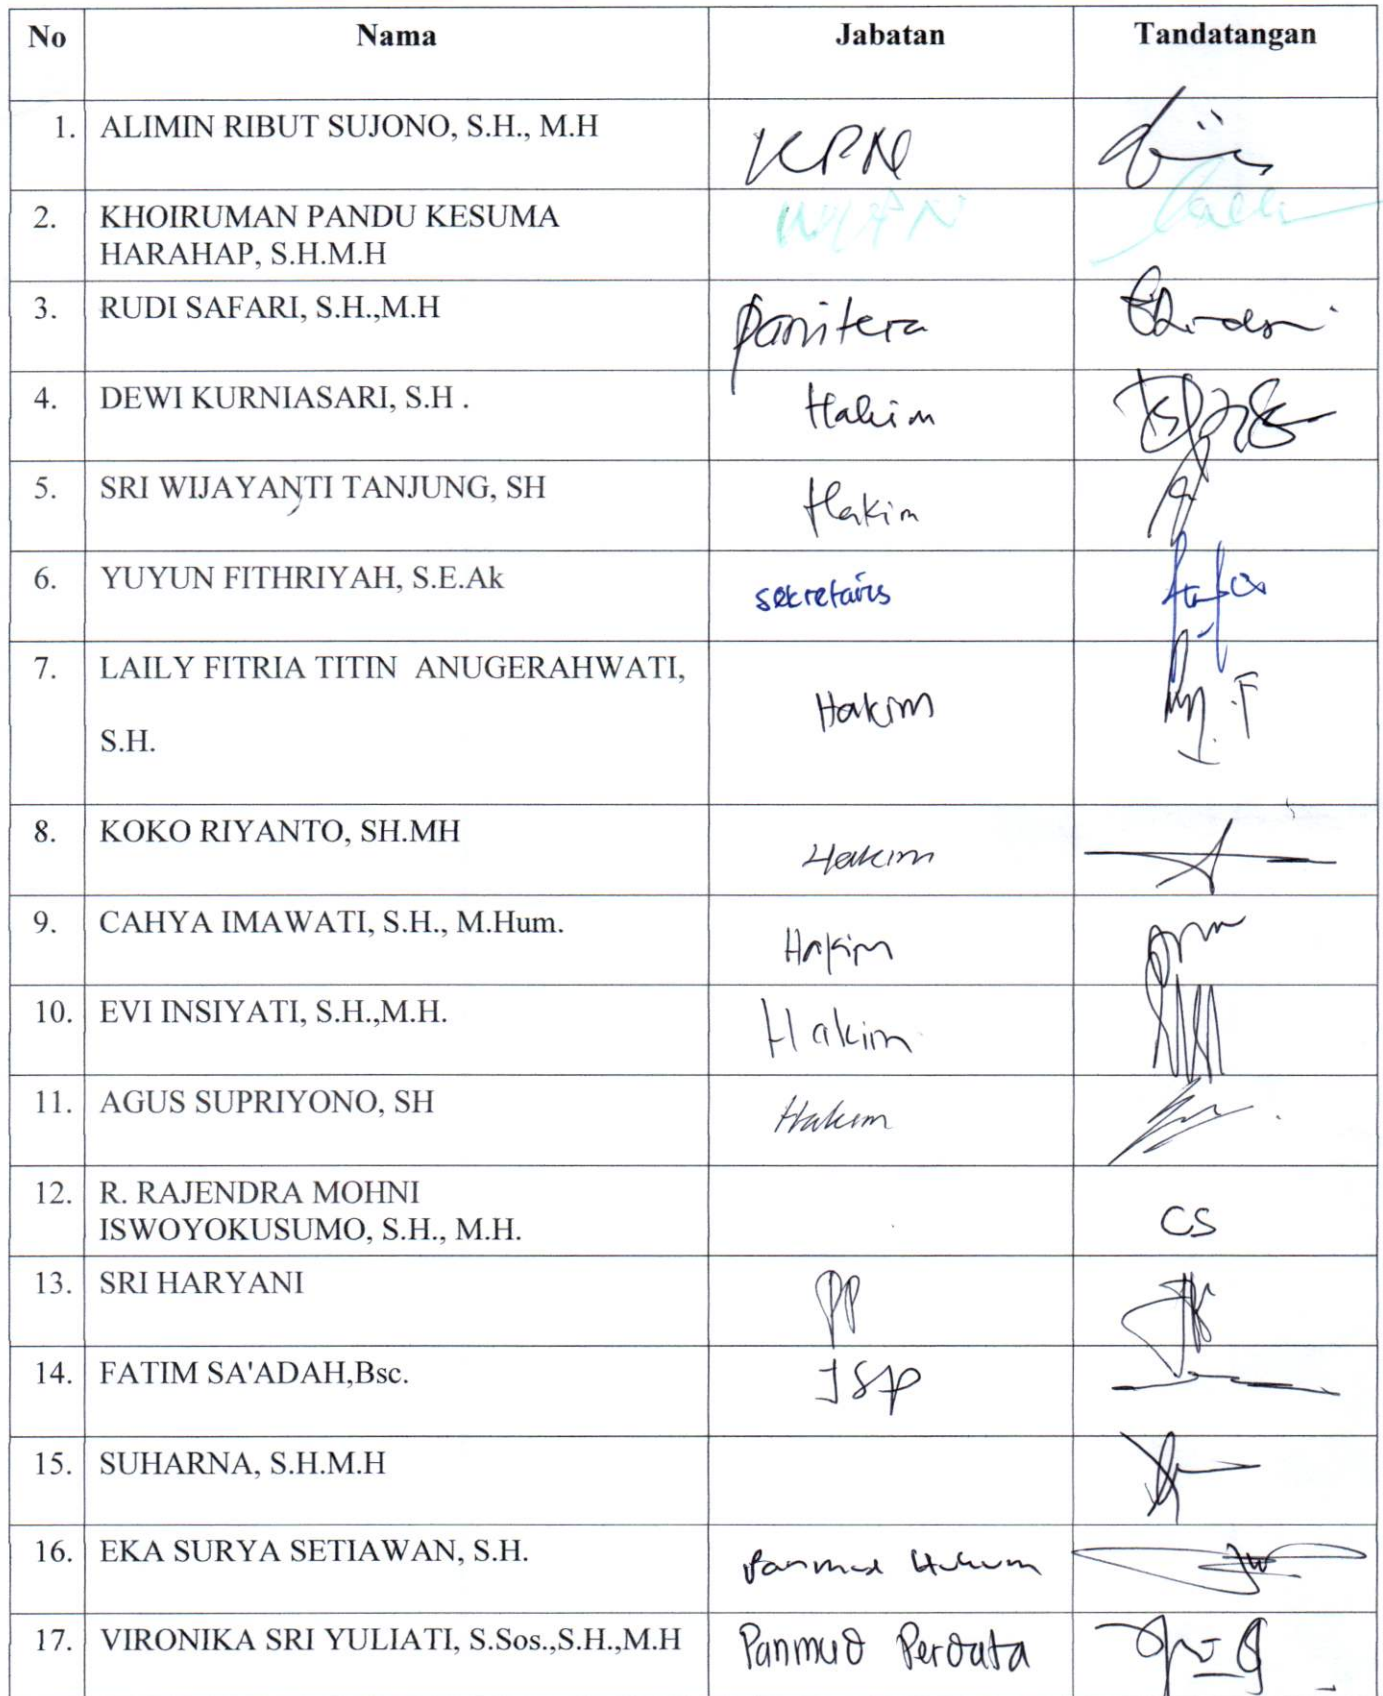 No Nama Jabatan Tandatangan
1. ALIMIN RIBUT SUJONO, S.H., M.H KPN
2. KHOIRUMAN PANDU KESUMA
HARAHAP, S.H.M.H
3. RUDI SAFARI, S.H.,M.H Panitera
4. DEWI KURNIASARI, S.H . Hakim
5. SRI WIJAYANTI TANJUNG, SH Hakim
6. YUYUN FITHRIYAH, S.E.Ak sekretaris
7. LAILY FITRIA TITIN ANUGERAHWATI,
Hakim
S.H.
8. KOKO RIYANTO, SH.MH Hakim
9. CAHYA IMAWATI, S.H., M.Hum. Hakim
10. EVI INSIYATI, S.H.,M.H. Hakim
11. AGUS SUPRIYONO, SH Hakim
12. R. RAJENDRA MOHNI
ISWOYOKUSUMO, S.H., M.H. CS
13. SRI HARYANI PP
14. FATIM SA'ADAH,Bsc. JSP
15. SUHARNA, S.H.M.H
16. EKA SURYA SETIAWAN, S.H. Panmud Hukum
17. VIRONIKA SRI YULIATI, S.Sos.,S.H.,M.H Panmud Perdata